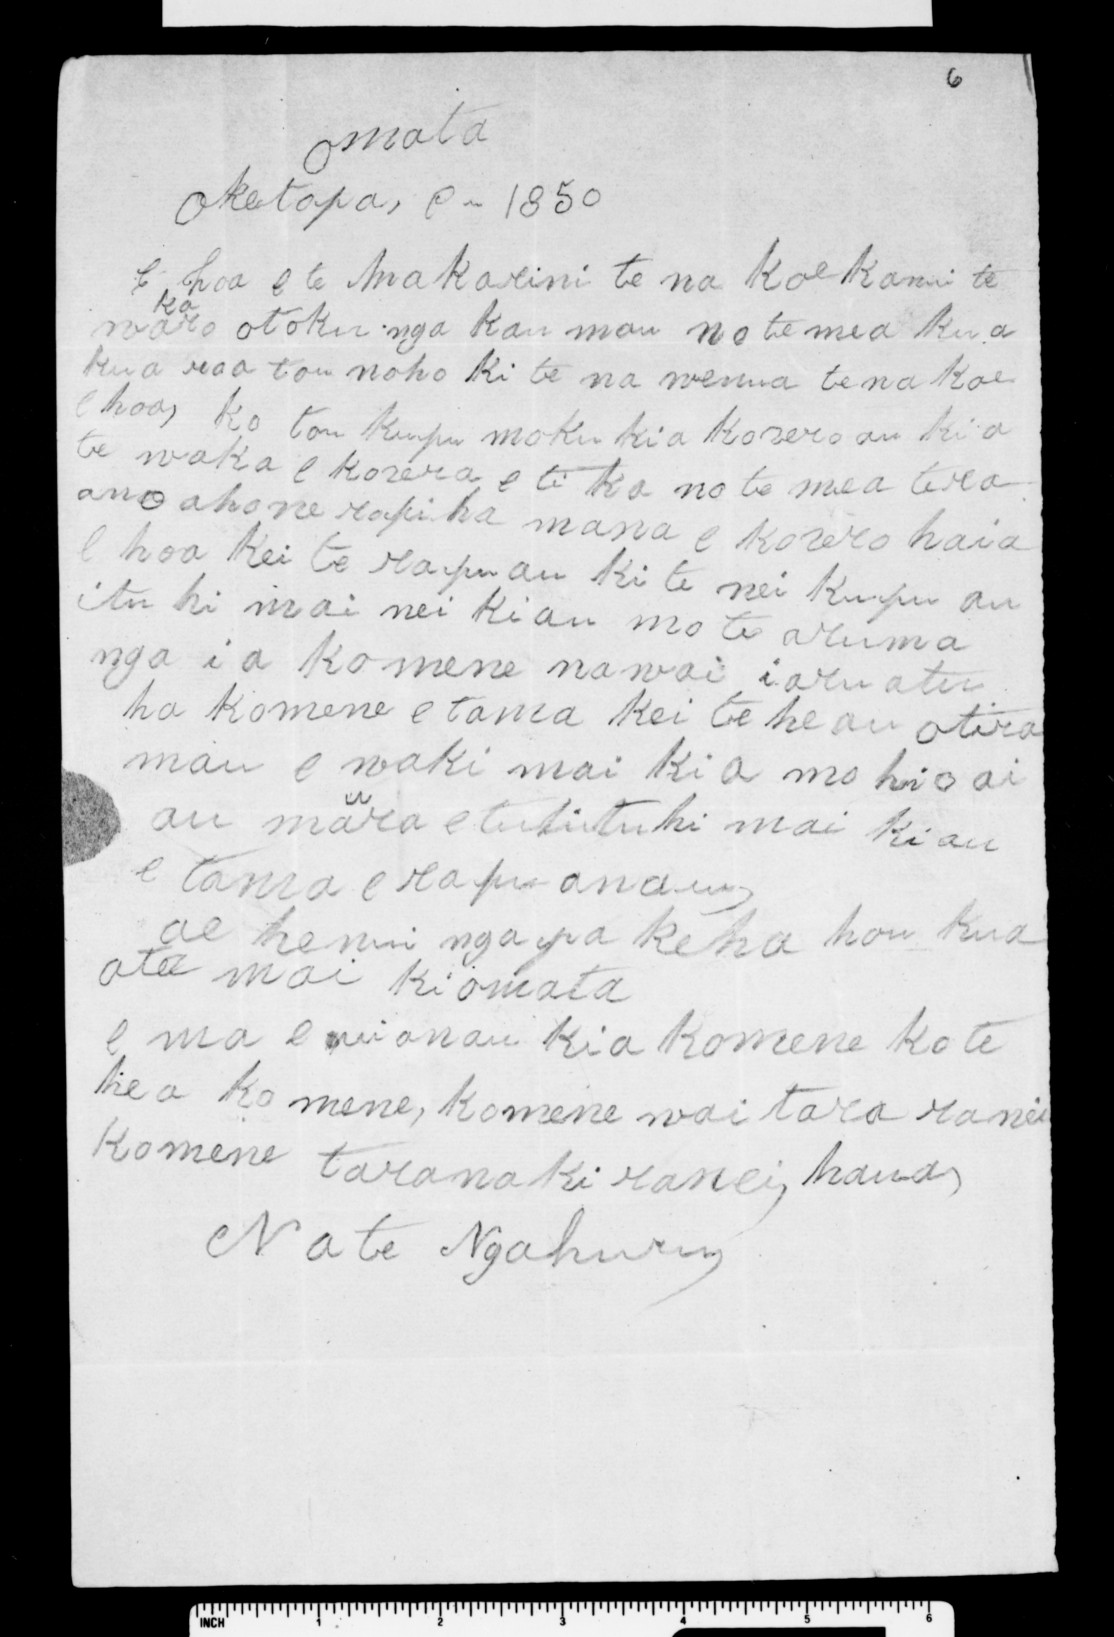 6
Omata
Oketopa, e - 1850
E hoa e te Makarini te na koe ka nui te
ka
waro otoku nga kau mau no te mea kua
kua roa tou noho ki te na wenua tena koe
e hoa, ko tou kupu moku kia korero au kia
te waka e korero e ti ka no te mea tera
ano ahone ropiha mana e korero haia
E hoa kei te rapu au ki te nei kupu au
itu hi mai nei kiau mo te aruma
nga i a komene nawai i aru atu
ha komene e tama kei te he au otira
mau e waki mai kia mohio ai
au mara e tuhituhi mai kiau
u
e tama e rapu anau,
ae he nui nga pa keha hou kua
atae mai ki omata
e ma e ui anau kia komene ko te
hea ko mene, komene wai tara ranei
komene taranaki ranei, haua,
Na te Ngahuru,
INCH 1 2 3 4 5 6